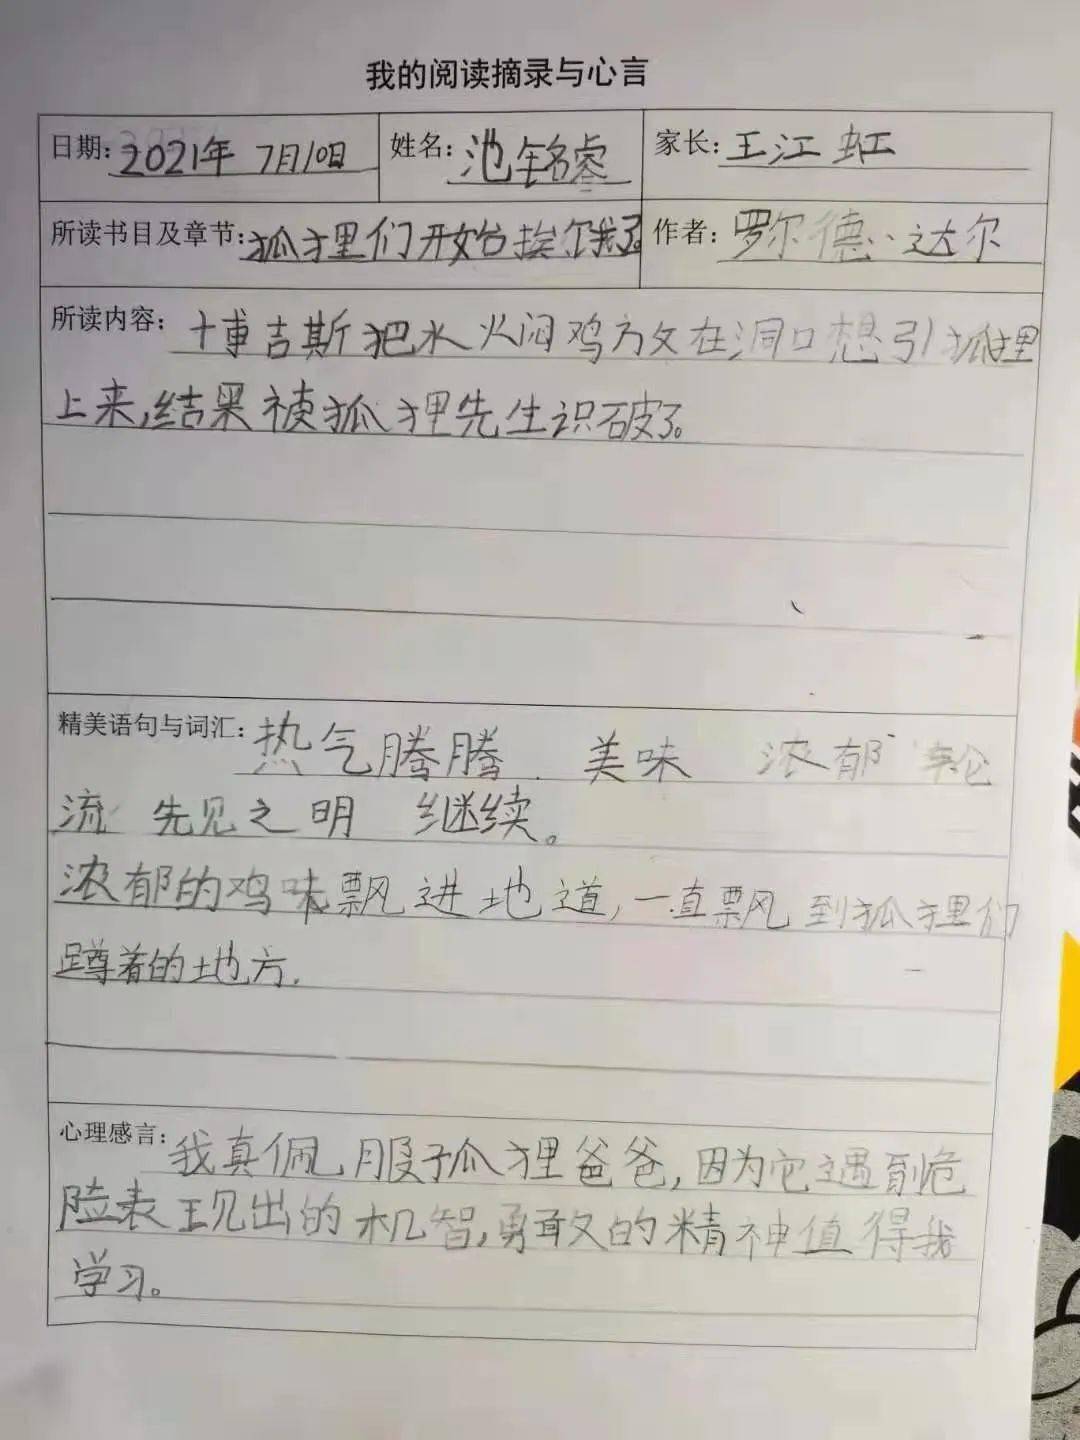 我的阅读摘录与心言
日期:2021年7月10日 姓名:池铭睿 家长:王江虹
所读书目及章节:狐狸们开始挨饿了。 作者:罗尔德·达尔
所读内容:博吉斯把水火闷鸡放在洞口想引狐狸
上来,结果被狐狸先生识破了。
精美语句与词汇:热气腾腾 美味 浓郁 轮
流 先见之明 继续。
浓郁的鸡味飘进地道,一直飘到狐狸们
蹲着的地方.
心理感言:我真佩服狐狸爸爸,因为它遇到危
险表现出的机智,勇敢的精神值得我
学习。